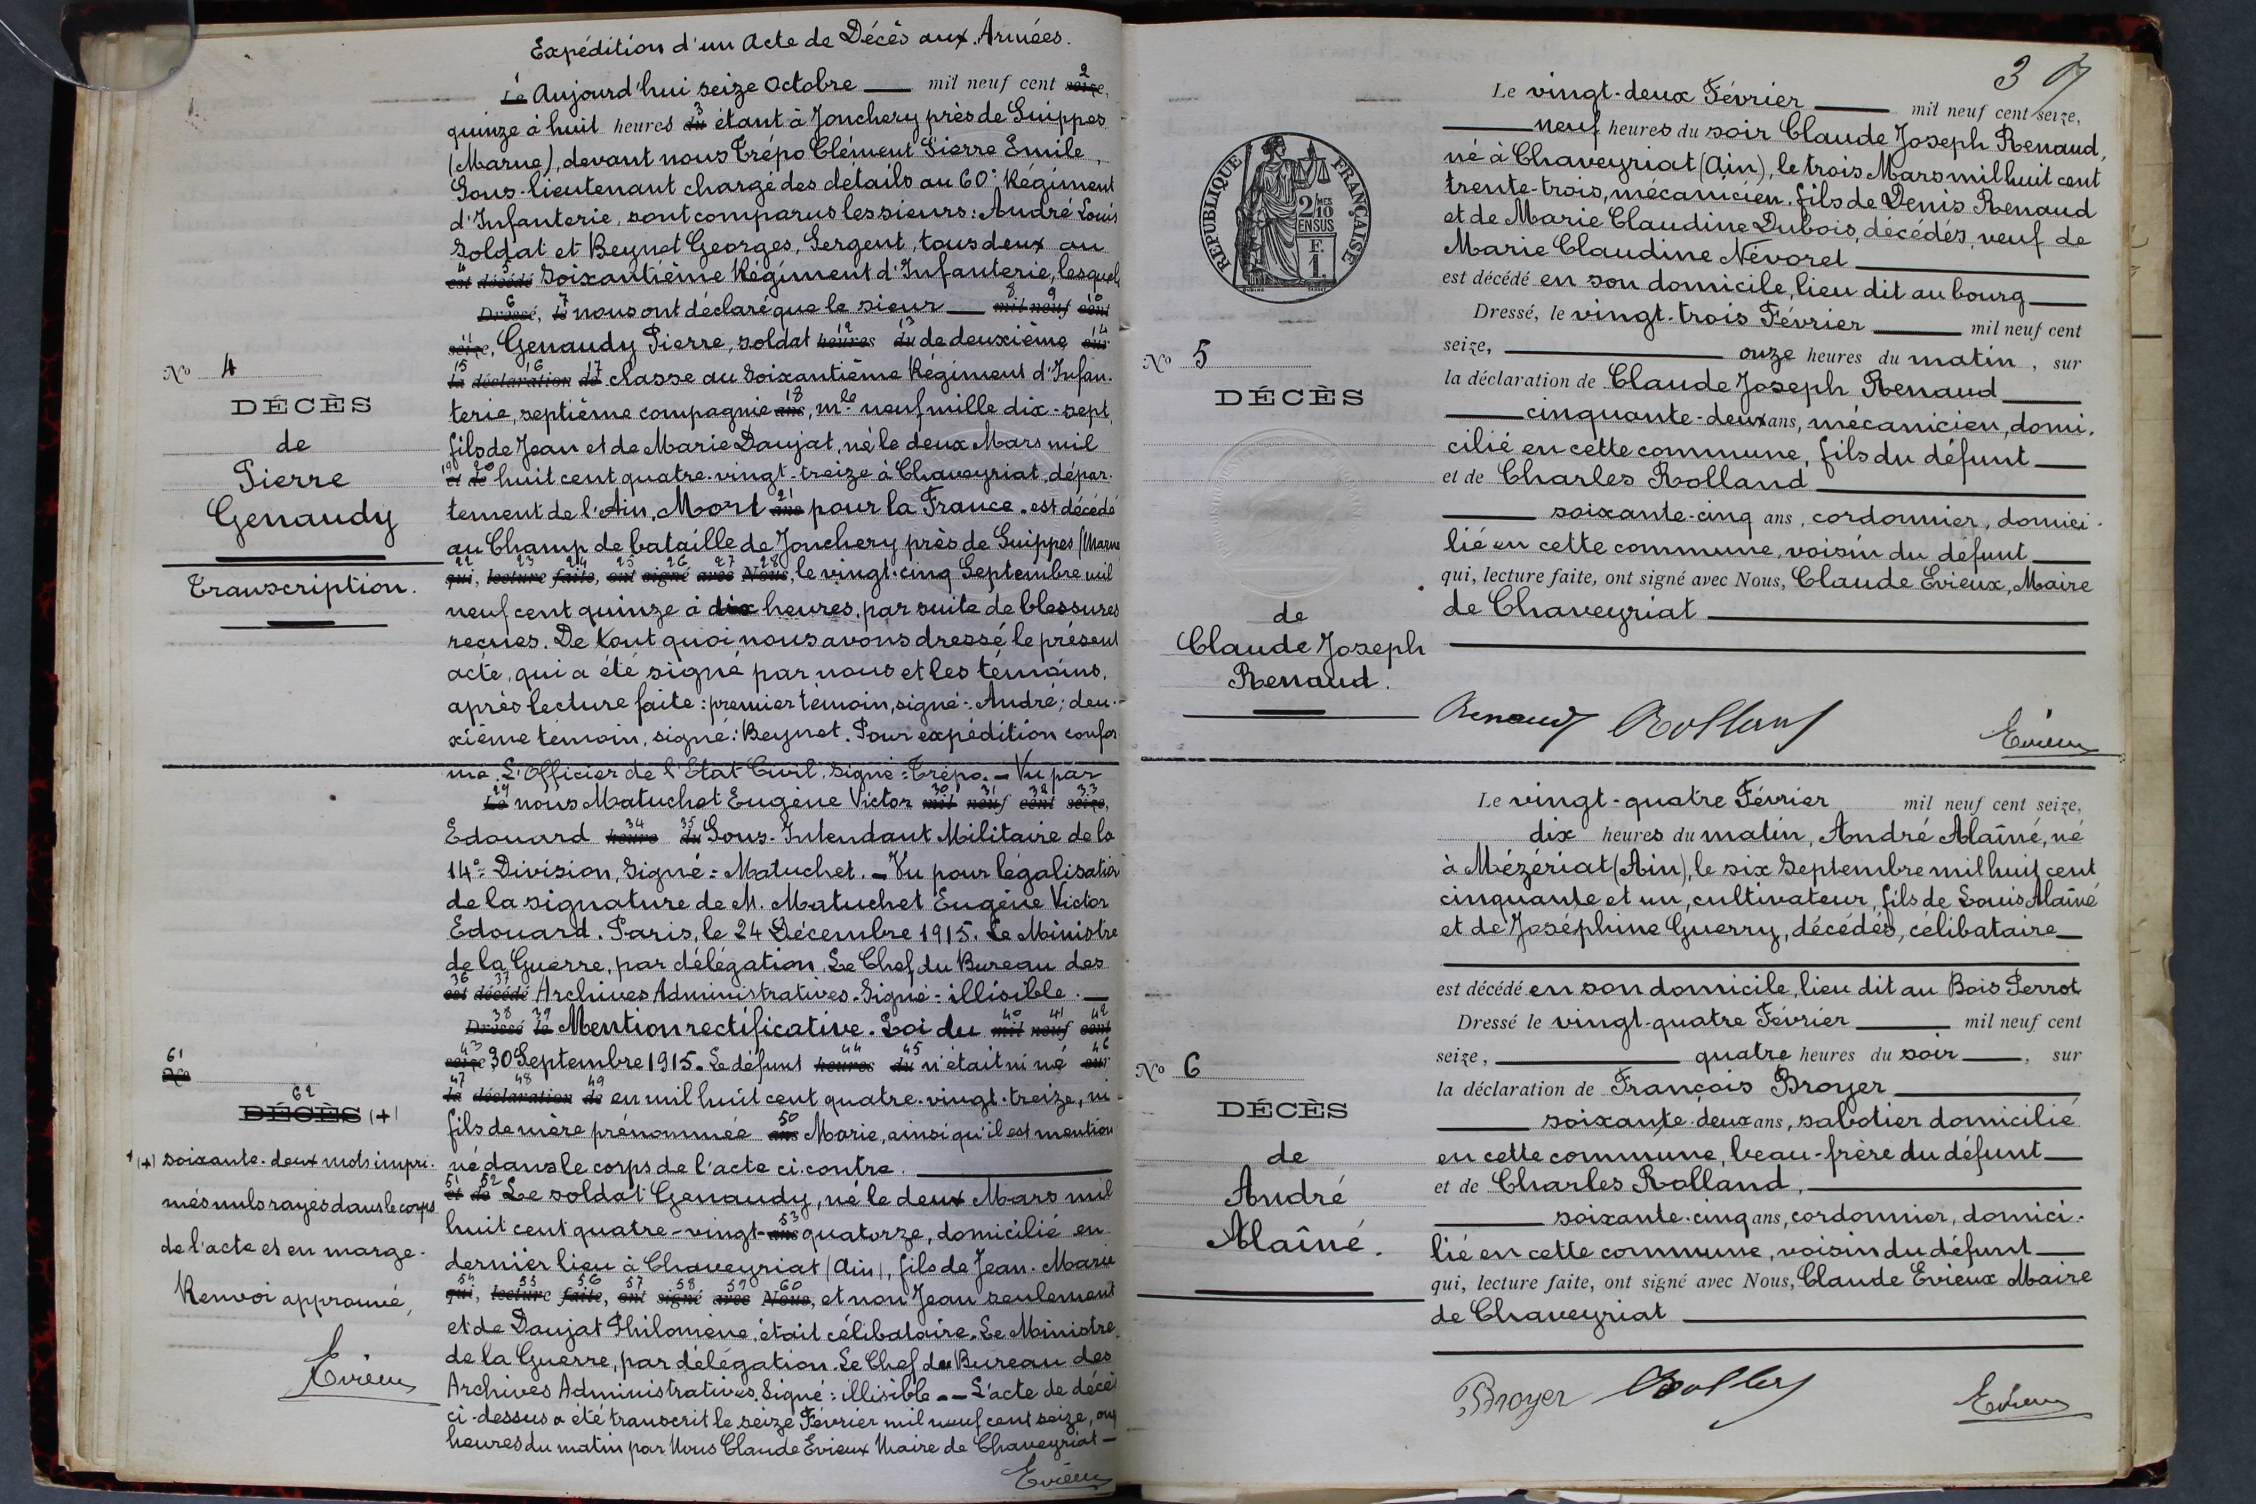 Expédition d'un Acte de Décès aux Armées.
1 2
Le Aujourd'hui seize Octobre mil neuf cent seize,
quinze à huit heures du 3 étant à Jonchery près de Suippes
(Marne), devant nous Trépo Clément Pierre Emile,
Sous-lieutenant chargé des détails au 60e Régiment
d'Infanterie, sont comparus les sieurs : André Louis
Soldat et Beynet Georges, Sergent, tous deux au
4 5
est décédé Soixantième Régiment d'Infanterie, lesquels
6 7 8 9 10
Dressé, le nous ont déclaré que le sieur mil neuf cent
11 12 13 14
seize, Genaudy Pierre, soldat heures du de deuxième sur
15 16 17
la déclaration de classe au Soixantième Régiment d'Infan-
terie, septième compagnie ans 18, mle neuf mille dix-sept,
fils de Jean et de Marie Daujat, né le deux Mars mil
19 20
et de huit cent quatre-vingt-treize à Chaveyriat, dépar-
tement de l'Ain, Mort ans 21 pour la France. est décédé
au Champ de bataille de Jonchery près de Suippes (Marne
22 23 24 25 26 27 28
qui, lecture faite, ont signé avec Nous, le vingt-cinq Septembre mil
neuf cent quinze à dix heures, par suite de blessures
reçues. De tout quoi nous avons dressé le présent
acte, qui a été signé par nous et les témoins,
après lecture faite : premier témoin, signé : André ; deu-
xième témoin, signé : Beynet. Pour expédition confor
me. L'Officier de l'Etat Civil. Signé : Trépo. — Vu par
29 30 31 32 33
Le nous Matuchet Eugène Victor mil neuf cent seize,
34 35
Edouard heure du Sous-Intendant Militaire de la
14e Division, Signé : Matuchet. — Vu pour légalisation
de la signature de M. Matuchet Eugène Victor
Edouard. Paris, le 24 Décembre 1915. Le Ministre
de la Guerre, par délégation, Le Chef du Bureau des
36 37
est décédé Archives Administratives. Signé : illisible. —
38 39 40 41 42
Dressé le Mention rectificative. Loi du mil neuf cent
43 44 45 46
seize 30 Septembre 1915. Le défunt heures du n'était ni né sur
47 48 49
la déclaration de en mil huit cent quatre-vingt-treize, ni
fils de mère prénommée ans 50 Marie, ainsi qu'il est mention
né dans le corps de l'acte ci-contre.
51 52
et de Le soldat Genaudy, né le deux Mars mil
huit cent quatre-vingt-ans 53 quatorze, domicilié en
dernier lieu à Chaveyriat (Ain), fils de Jean-Marie
54 55 56 57 58 59 60
qui, lecture faite, ont signé avec Nous, et non Jean seulement
et de Daujat Philomène, était célibataire. Le Ministre
de la Guerre, par délégation. Le Chef du Bureau des
Archives Administratives, Signé : illisible. — L'acte de décès
ci-dessus a été transcrit le seize Février mil neuf cent seize, onz
heures du matin par Nous Claude Evieux Maire de Chaveyriat —
Evieux
No 4
DÉCÈS
de
Pierre
Genaudy
Transcription.
61
No
62
DÉCÈS (+)
(+) soixante-deux mots impri-
més nuls rayés dans le corps
de l'acte et en marge.
Renvoi approuvé,
Evieux
3
RÉPUBLIQUE FRANÇAISE
2/10 MES
EN SUS
F.
1.
No 5
DÉCÈS
de
Claude Joseph
Renaud.
Le vingt-deux Février mil neuf cent seize,
neuf heures du soir Claude Joseph Renaud,
né à Chaveyriat (Ain), le trois Mars mil huit cent
trente-trois, mécanicien, fils de Denis Renaud
et de Marie Claudine Dubois, décédés, veuf de
Marie Claudine Névoret
est décédé en son domicile, lieu dit au bourg
Dressé, le vingt-trois Février mil neuf cent
seize, onze heures du matin, sur
la déclaration de Claude Joseph Renaud
cinquante-deux ans, mécanicien, domi-
cilié en cette commune, fils du défunt
et de Charles Rolland
soixante-cinq ans, cordonnier, domici-
lié en cette commune, voisin du défunt
qui, lecture faite, ont signé avec Nous, Claude Evieux, Maire
de Chaveyriat
Renaud Rolland Evieux
No 6
DÉCÈS
de
André
Alaîné.
Le vingt-quatre Février mil neuf cent seize,
dix heures du matin, André Alaîné, né
à Mézériat (Ain), le six Septembre mil huit cent
cinquante et un, cultivateur, fils de Louis Alaîné
et de Joséphine Guerry, décédés, célibataire
est décédé en son domicile, lieu dit au Bois Perrot
Dressé le vingt-quatre Février mil neuf cent
seize, quatre heures du soir, sur
la déclaration de François Broyer
soixante-deux ans, sabotier domicilié
en cette commune, beau-frère du défunt
et de Charles Rolland,
soixante-cinq ans, cordonnier, domici-
lié en cette commune, voisin du défunt
qui, lecture faite, ont signé avec Nous, Claude Evieux Maire
de Chaveyriat
Broyer Rolland Evieux